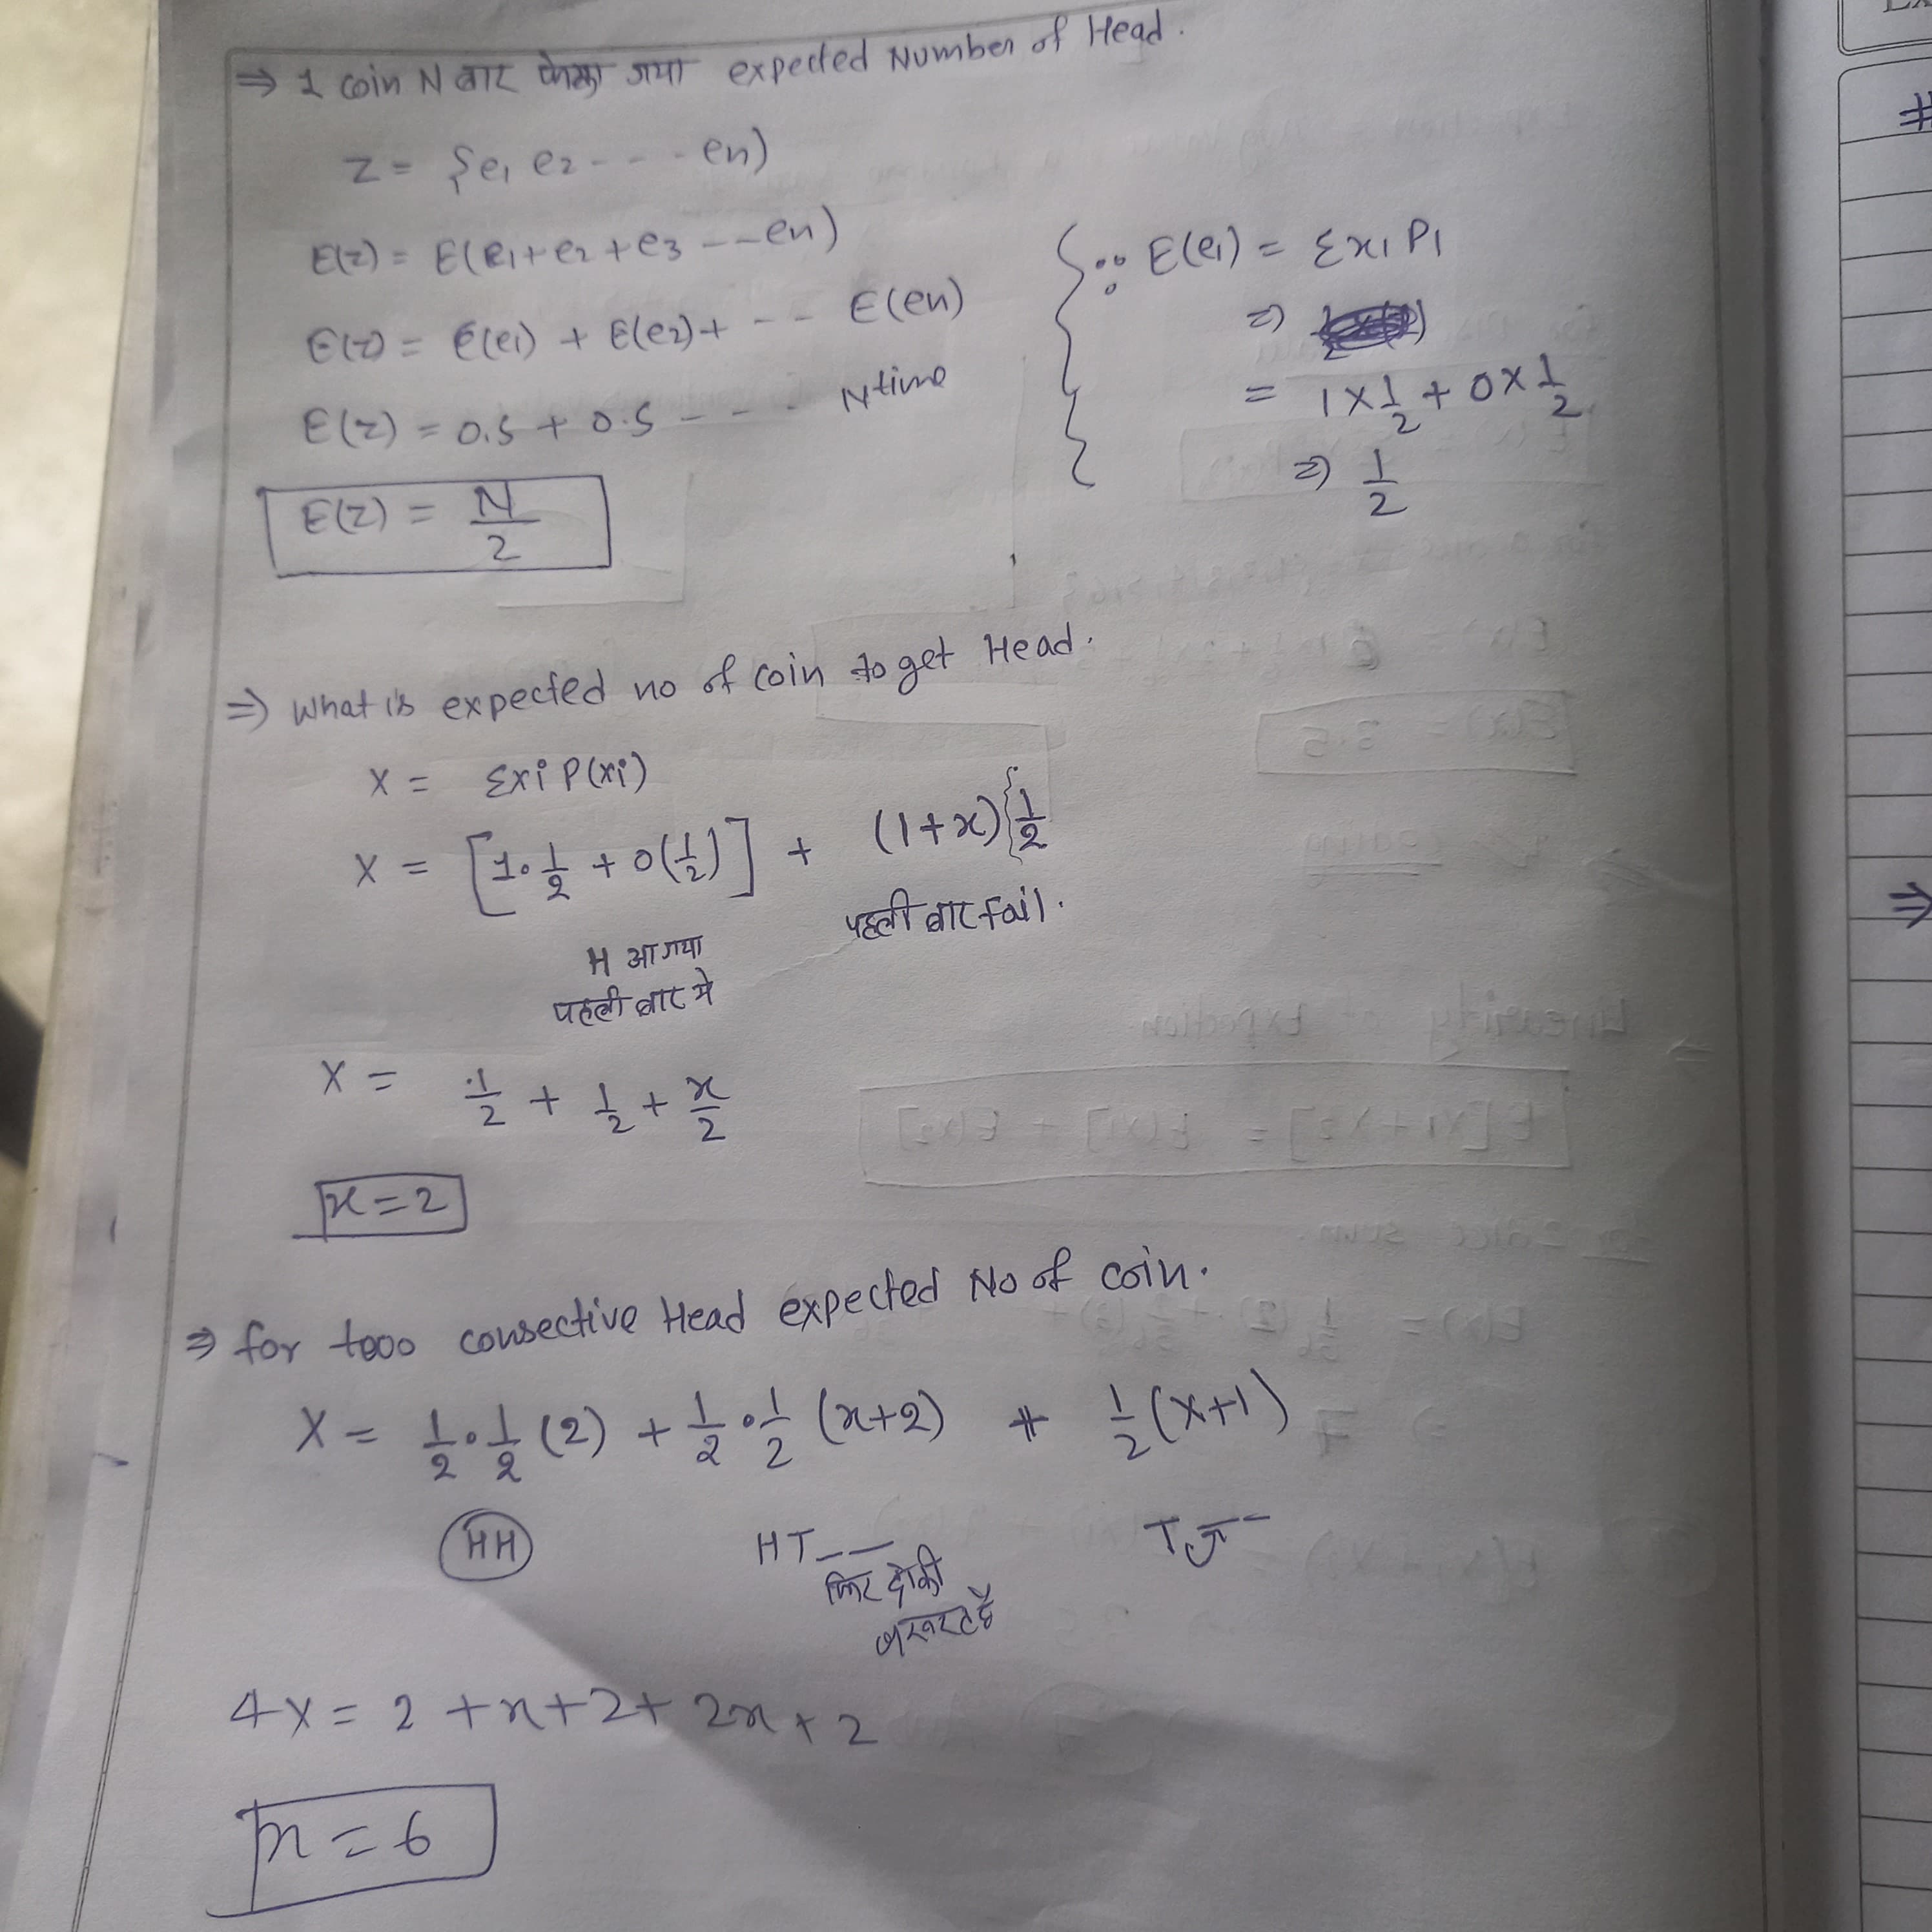 ⇒ 1 coin N बार फेका गया expected Number of Head.
Z = {e1 e2 - - - en)
E(z) = E(e1+e2+e3 - - en)
E(z) = E(e1) + E(e2)+ - - E(en)
E(z) = 0.5 + 0.5 - - - N time
E(z) = N/2
{∵ E(e1) = Σx1 P1
⇒
= 1×1/2 + 0×1/2
⇒ 1/2
⇒ What is expected no of coin to get Head.
X = Σxi P(xi)
X = [1·1/2 + 0(1/2)] + (1+x){1/2
H आ गया
पहली बार मे
पहली बार fail.
X = 1/2 + 1/2 + x/2
x=2
⇒ for two consective Head expected No of coin.
X = 1/2·1/2 (2) + 1/2·1/2 (x+2) + 1/2(x+1)
HH
HT_ _
फिर दो की
जरूरत है
T
4X = 2 +x+2+ 2x+2
x=6
⇒